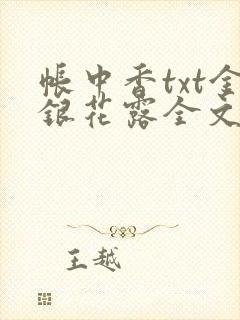 帐中香txt金
银花露全文
王越